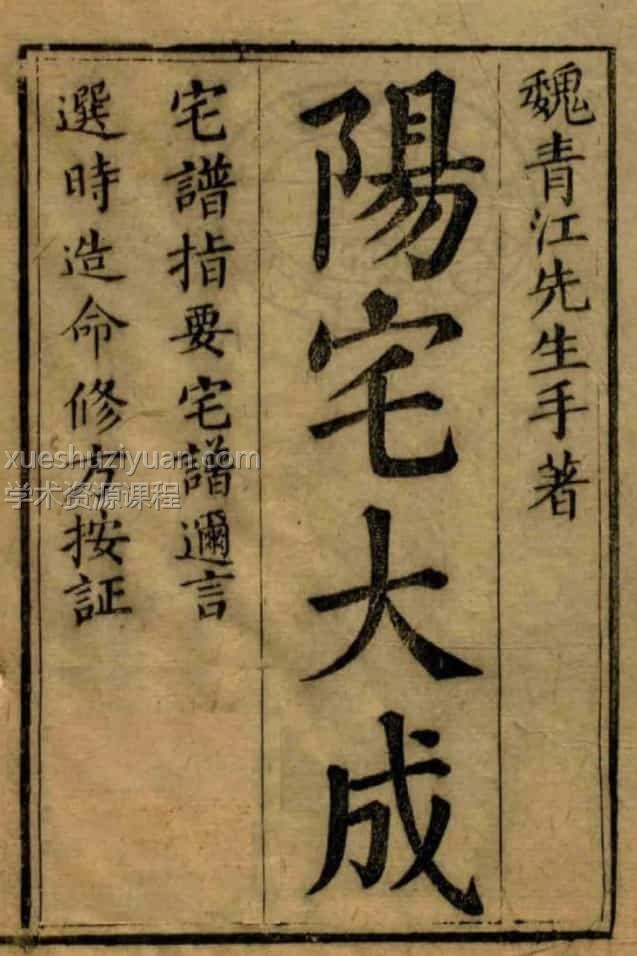 魏青江先生手著
陽宅大成
宅譜指要宅譜邇言
選時造命修方按証
xueshuziyuan.com
学术资源课程